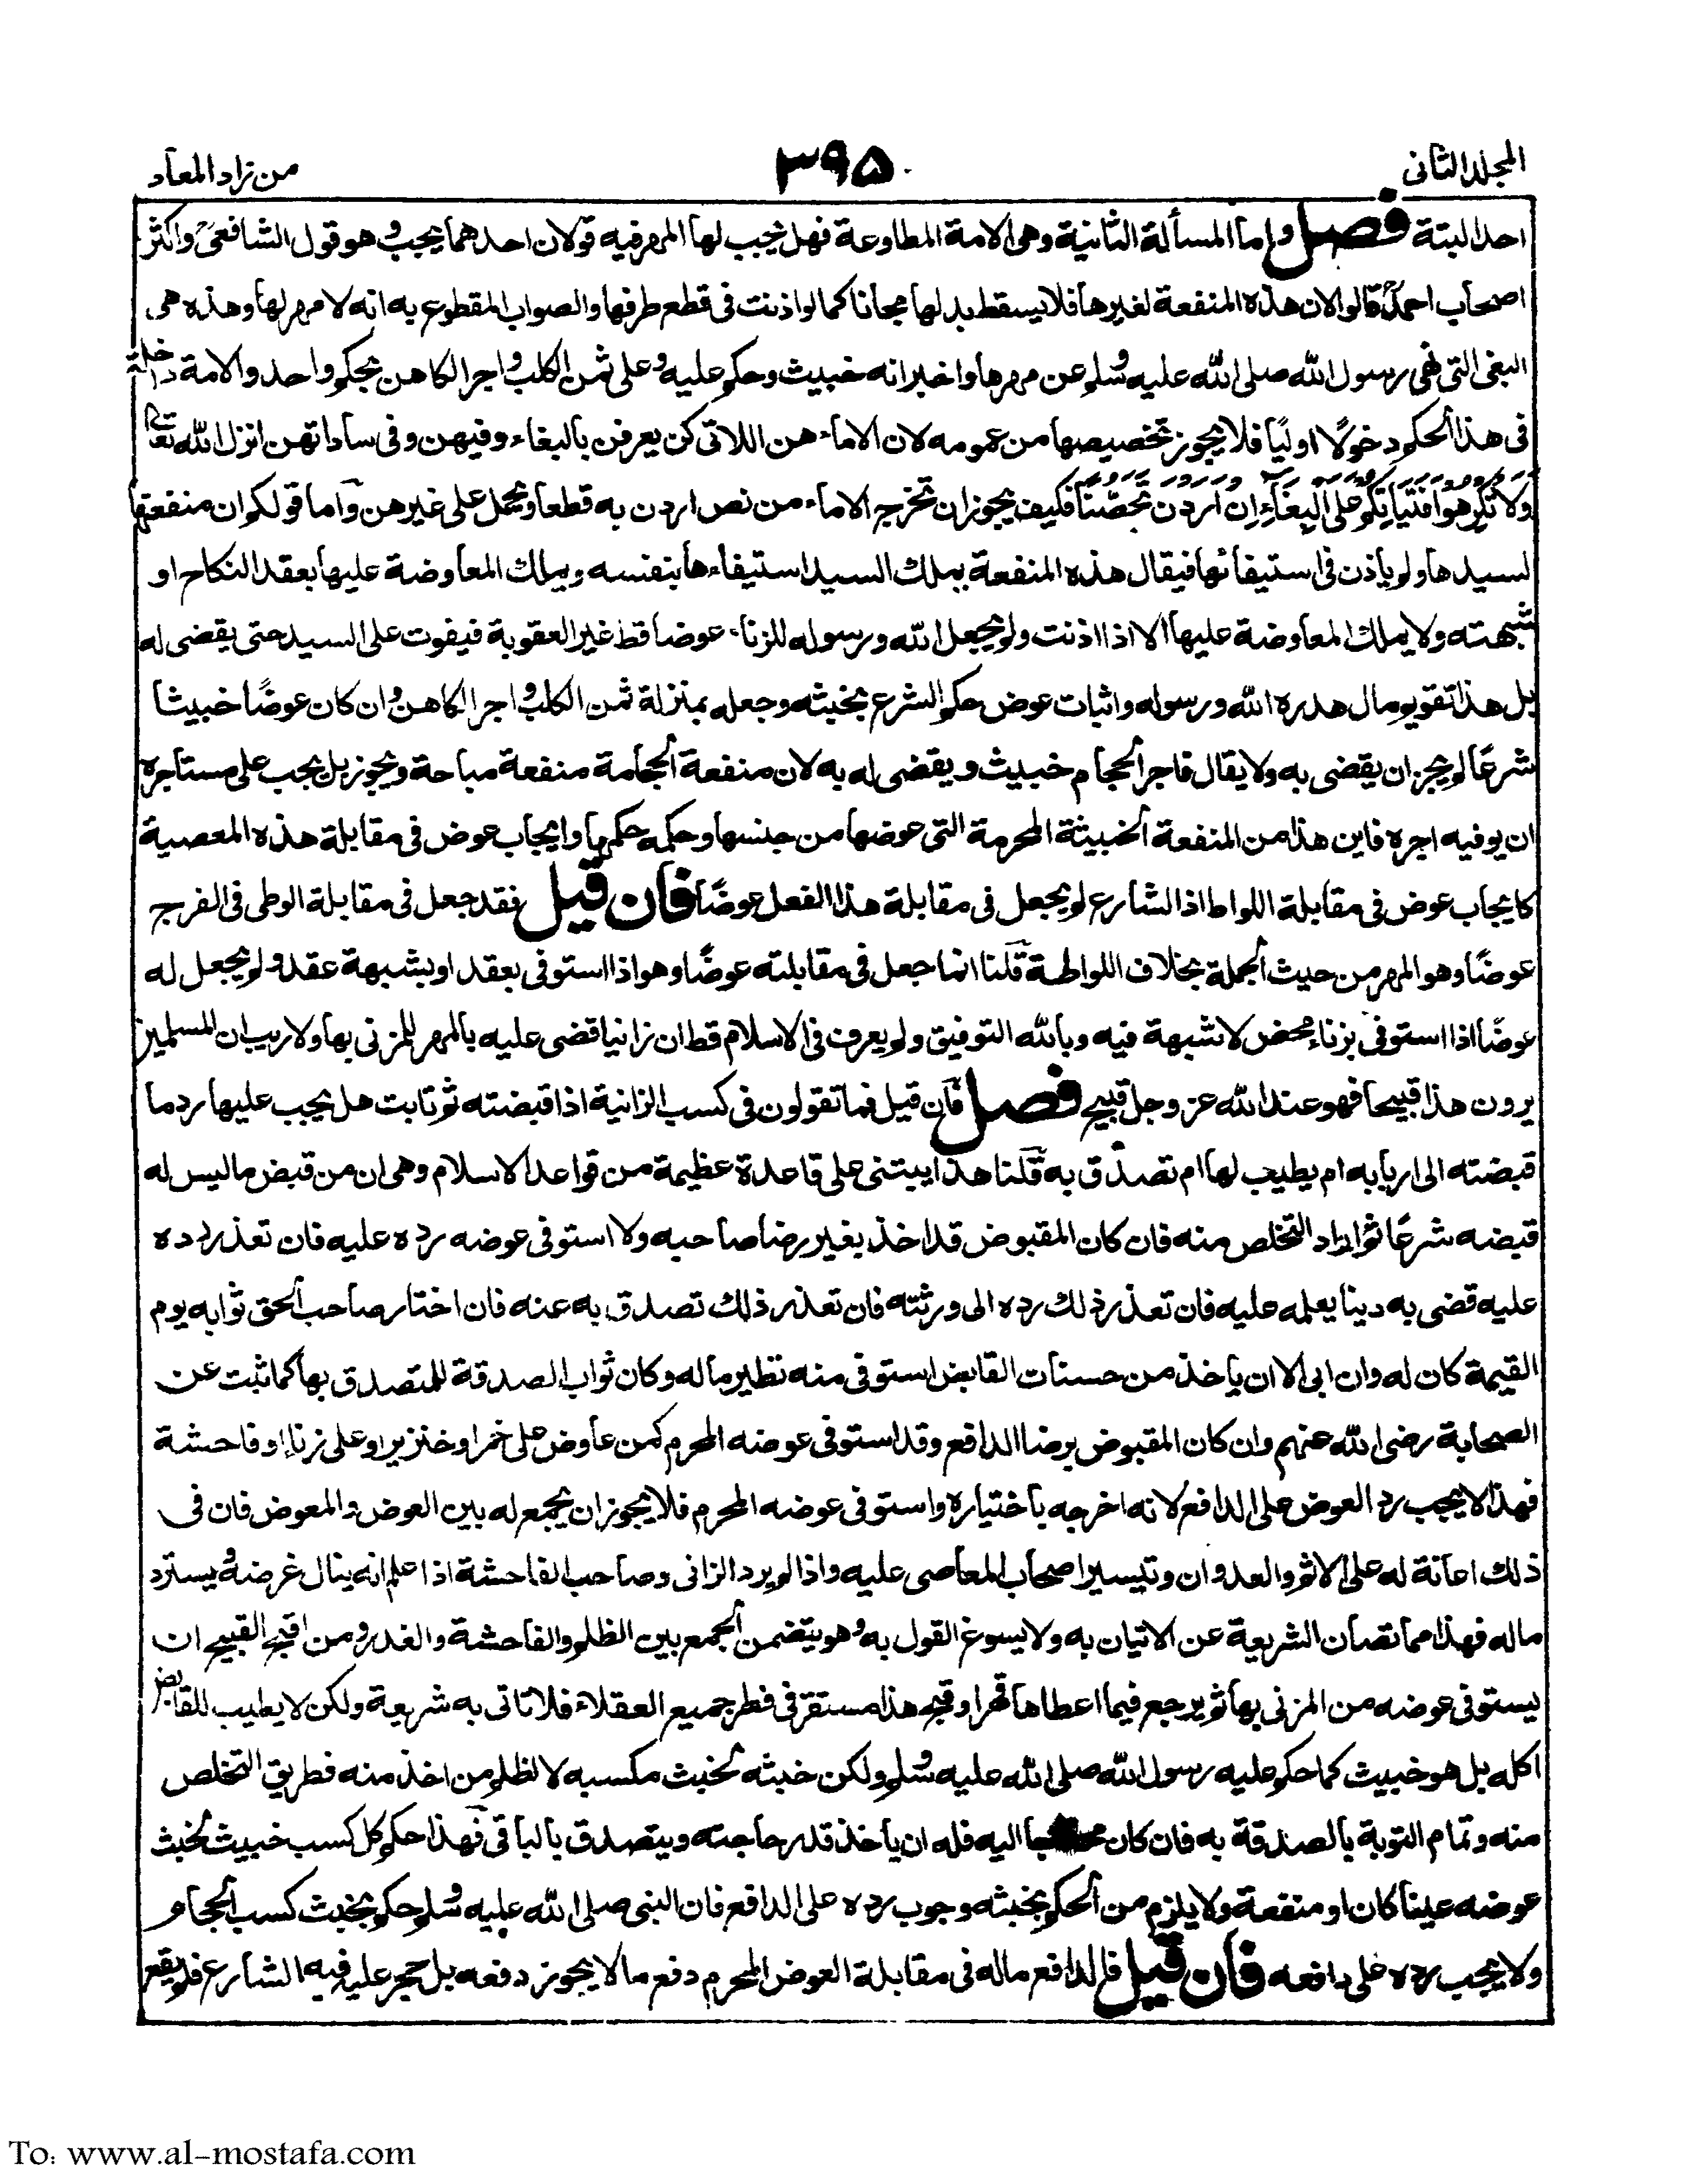 المجلد الثانى
٣٩٥
من زاد المعاد
احد البتة فصل واما المسألة الثانية وهى الامة المطاوعة فهل يجب لها المهر فيه قولان احدهما يجب وهو قول الشافعى واكثر
اصحاب احمد قالوا لان هذه المنفعة لغيرها فلا يسقط بدلها مجانا كما لو اذنت فى قطع طرفها والصواب المقطوع به انه لا مهر لها وهذه هى
البغى التى نهى رسول الله صلى الله عليه وسلم عن مهرها واخبر انه خبيث وحكم عليه وعلى ثمن الكلب واجر الكاهن بحكم واحد والامة داخلة
فى هذا الحكم دخولًا اوليًا فلا يجوز تخصيصها من عمومه لان الاماء هن اللاتى كن يعرفن بالبغاء وفيهن وفى ساداتهن انزل الله تعالى
وَلَا تُكْرِهُوا فَتَيَاتِكُمْ عَلَى الْبِغَاءِ اِنْ اَرَدْنَ تَحَصُّنًا فكيف يجوز ان تخرج الاماء من نص اردن به قطعا ويحمل على غيرهن وأما قولكم ان منفعتها
لسيدها ولم يأذن فى استيفائها فيقال هذه المنفعة يملك السيد استيفاءها بنفسه ويملك المعاوضة عليها بعقد النكاح او
شبهته ولا يملك المعاوضة عليها الا اذا اذنت ولم يجعل الله ورسوله للزناء عوضا قط غير العقوبة فيفوت على السيد حتى يقضى له
بل هذا تقويم مال هدره الله ورسوله واثبات عوض حكم الشرع بخبثه وجعله بمنزلة ثمن الكلب واجر الكاهن وان كان عوضًا خبيثا
شرعًا لم يجز ان يقضى به ولا يقال فاجر الحجام خبيث ويقضى له به لان منفعة الحجامة منفعة مباحة ويجوز بل يجب على مستاجره
ان يوفيه اجره فاين هذا من المنفعة الخبيثة المحرمة التى عوضها من جنسها وحكمه حكمها وايجاب عوض فى مقابلة هذه المعصية
كايجاب عوض فى مقابلة اللواط اذ الشارع لم يجعل فى مقابلة هذا الفعل عوضًا فان قيل فقد جعل فى مقابلة الوطى فى الفرج
عوضًا وهو المهر من حيث الجملة بخلاف اللواطة قلنا انما جعل فى مقابلته عوضًا وهو اذا استوفى بعقد او بشبهة عقد ولم يجعل له
عوضًا اذا استوفى بزناء محض لا شبهة فيه وبالله التوفيق ولم يعرف فى الاسلام قط ان زانيا قضى عليه بالمهر للمزنى بها ولا ريب ان المسلمين
يرون هذا قبيحا فهو عند الله عز وجل قبيح فصل فان قيل فما تقولون فى كسب الزانية اذا قبضته ثم تابت هل يجب عليها رد ما
قبضته الى اربابه ام يطيب لها ام تصدق به قلنا هذا يبتنى على قاعدة عظيمة من قواعد الاسلام وهى ان من قبض ما ليس له
قبضه شرعًا ثم اراد التخلص منه فان كان المقبوض قد اخذ بغير رضا صاحبه ولا استوفى عوضه رده عليه فان تعذر رده
عليه قضى به دينا يعلمه عليه فان تعذر ذلك رده الى ورثته فان تعذر ذلك تصدق به عنه فان اختار صاحب الحق ثوابه يوم
القيمة كان له وان ابى الا ان ياخذ من حسنات القابض استوفى منه نظير ماله وكان ثواب الصدقة للمتصدق بها كما ثبت عن
الصحابة رضى الله عنهم وان كان المقبوض برضا الدافع وقد استوفى عوضه المحرم كمن عاوض على خمر او خنزير او على زناء او فاحشة
فهذا لا يجب رد العوض على الدافع لانه اخرجه باختياره واستوفى عوضه المحرم فلا يجوز ان يجمع له بين العوض والمعوض فان فى
ذلك اعانة له على الاثم والعدوان وتيسير اصحاب المعاصى عليه واذا لم يرد الزانى وصاحب الفاحشة اذا علم انه ينال غرضه ويسترد
ماله فهذا مما تصان الشريعة عن الاتيان به ولا يسوغ القول به وهو يتضمن الجمع بين الظلم والفاحشة والغدر ومن اقبح القبيح ان
يستوفى عوضه من المزنى بها ثم يرجع فيما اعطاها قهرا وقبح هذا مستقر فى فطر جميع العقلاء فلا تاتى به شريعة ولكن لا يطيب للقابض
اكله بل هو خبيث كما حكم عليه رسول الله صلى الله عليه وسلم ولكن خبثه لخبث مكسبه لا لظلم من اخذ منه فطريق التخلص
منه وتمام التوبة بالصدقة به فان كان محتاجا اليه فله ان ياخذ قدر حاجته ويتصدق بالباقى فهذا حكم كل كسب خبيث لخبث
عوضه عينا كان او منفعة ولا يلزم من الحكم بخبثه وجوب رده على الدافع فان النبى صلى الله عليه وسلم حكم بخبث كسب الحجام
ولا يجب رده على دافعه فان قيل فالدافع ماله فى مقابلة العوض المحرم دفع ما لا يجوز دفعه بل حجر عليه فيه الشارع فلم يقع
To: www.al-mostafa.com